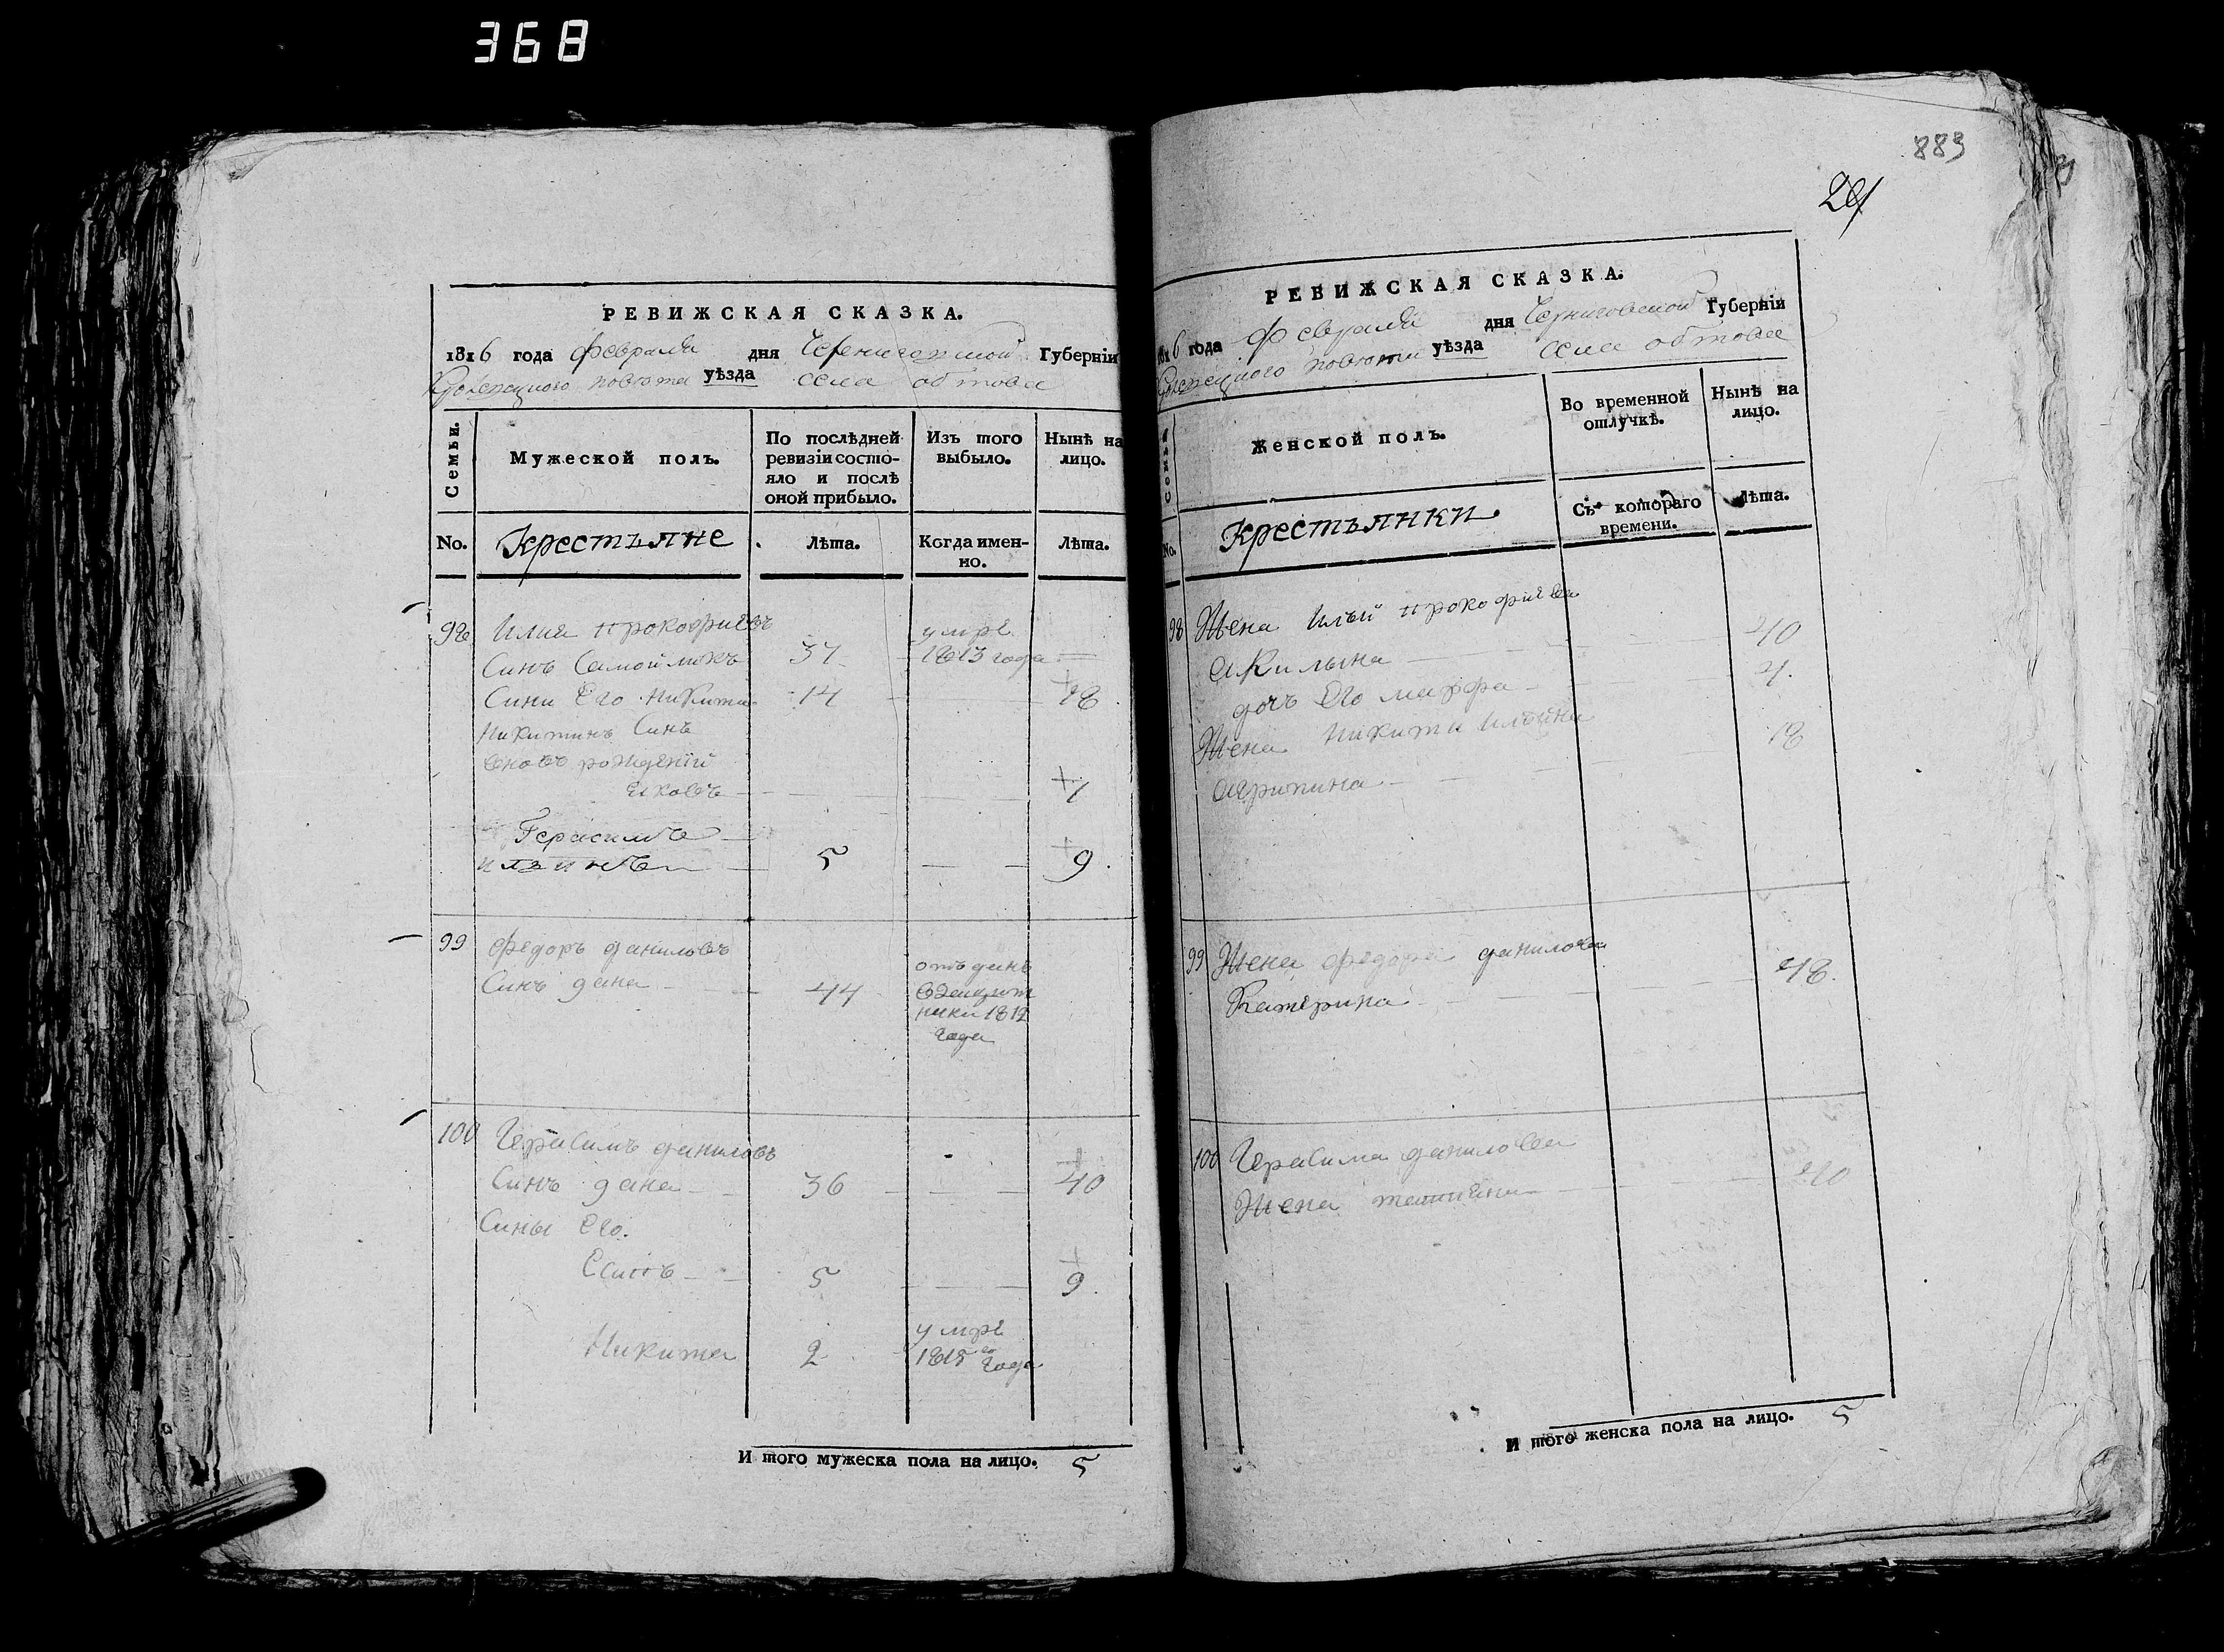 368
РЕВИЖСКАЯ СКАЗКА.
1816 года февраля дня Черниговской Губерніи
повета уѣзда села обтова
Семьи.
Мужеской полъ.
По послѣдней
ревизіи состо-
яло и послѣ
оной прибыло.
Изъ того
выбыло.
Нынѣ на
лицо.
No.
Крестьяне
Лѣта.
Когда имен-
но.
Лѣта.
98 Илия прокофиевъ умре
Синъ 37 1813 года
Сини Его Никита 14 18
Никитинъ Синъ
рожденій
Яковъ 1
Герасимъ
илзинъ 5 9
99 Федоръ даниловъ отъдань
Синъ дана 44
ники 1812
года
100 Герасимъ даниловъ
Синъ дана 36 40
Сины Его.
Есипъ 5 9
Никита 2 умре
1815 го года
И того мужеска пола на лицо. 5
883
РЕВИЖСКАЯ СКАЗКА.
1816 года Февраля дня Черниговской Губерніи
повета уѣзда села обтова
Семьи
Женской полъ.
Во временной
отлучкѣ.
Нынѣ на
лицо.
No.
Крестьянки.
Съ котораго
времени.
Лѣта.
98 Жена Ильи прокофиева
Акилина 40
дочъ Его марфа 4.
Жена Никити Илѣина 18
Агрипина
99 Жена федора данилова
Катерина 48.
100 Герасима данилова
Жена 40
И того женска пола на лицо. 5